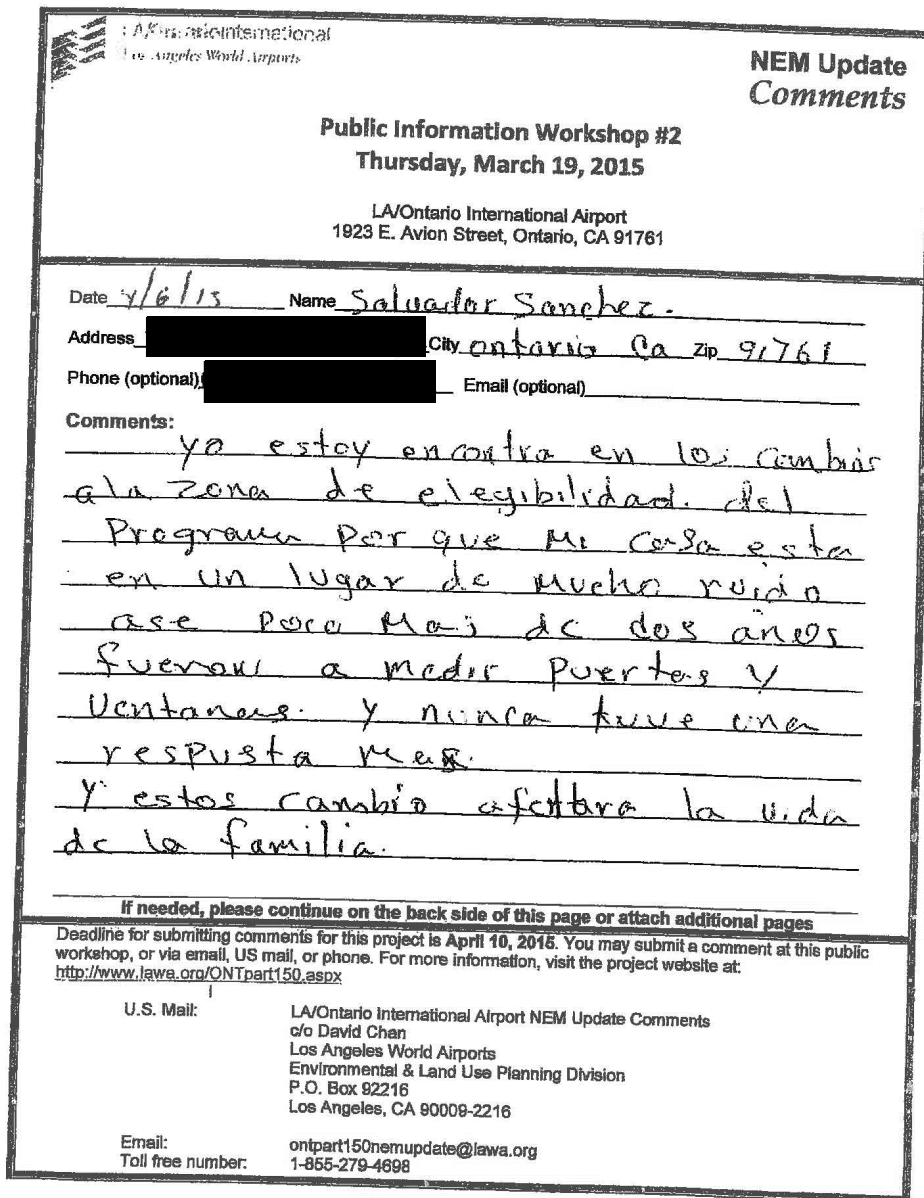 LA/Ontario International
Los Angeles World Airports
NEM Update
Comments
Public Information Workshop #2
Thursday, March 19, 2015
LA/Ontario International Airport
1923 E. Avion Street, Ontario, CA 91761
Date 4/6/15 Name Salvador Sanchez.
Address City ontario Ca Zip 91761
Phone (optional) Email (optional)
Comments:
yo estoy encontra en los cambios
ala zona de elegibilidad. del
Programa Por que Mi casa esta
en un lugar de Mucho ruido
ase Poco Mas de dos años
fueron a medir Puertas y
Ventanas. y nunca tuve una
resPusta Mas.
Y estos cambio afectara la vida
de la familia.
If needed, please continue on the back side of this page or attach additional pages
Deadline for submitting comments for this project is April 10, 2015. You may submit a comment at this public
workshop, or via email, US mail, or phone. For more information, visit the project website at:
http://www.lawa.org/ONTpart150.aspx
U.S. Mail: LA/Ontario International Airport NEM Update Comments
c/o David Chan
Los Angeles World Airports
Environmental & Land Use Planning Division
P.O. Box 92216
Los Angeles, CA 90009-2216
Email: ontpart150nemupdate@lawa.org
Toll free number: 1-855-279-4698